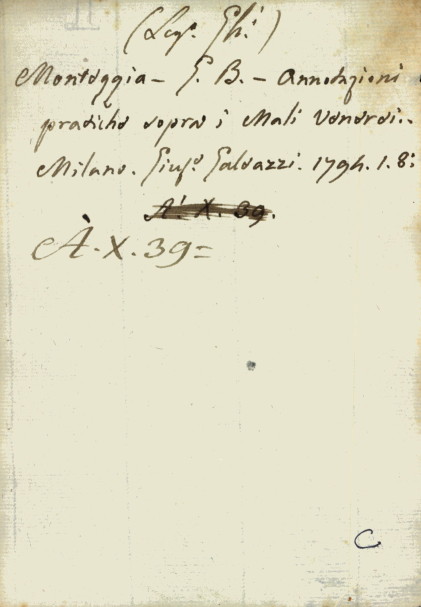 (Leg.
Monteggia - G. B. - Annotazioni
pratiche sopra i Mali Venerei..
Milano. Gius.e Galeazzi. 1794. 1. 8:
A. X. 39.
À. X. 39=
C